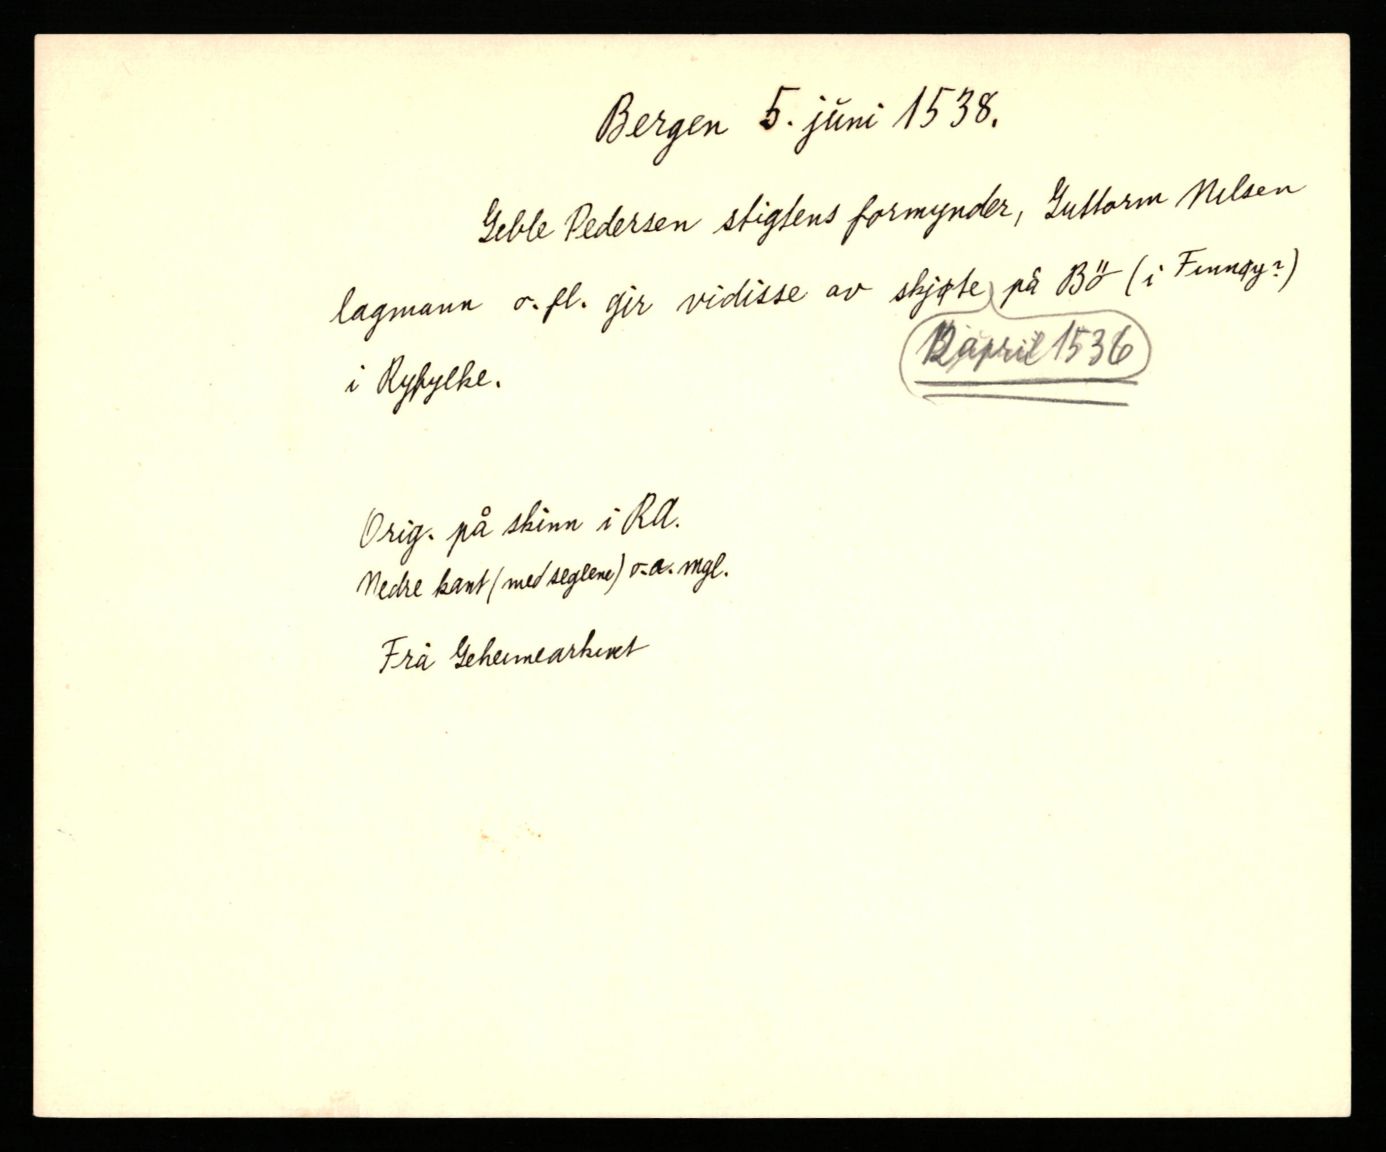 Bergen 5. juni 1538.
Geble Pedersen stigtens formynder, Guttorm Nilsen
lagmann o. fl. gir vidisse av skjøte på Bö (i Finnøy?)
12 april 1536
i Ryfylke.
Orig. på skinn i RA.
Nedre kant (med seglene) o.a. mgl.
Frå Geheimearkivet